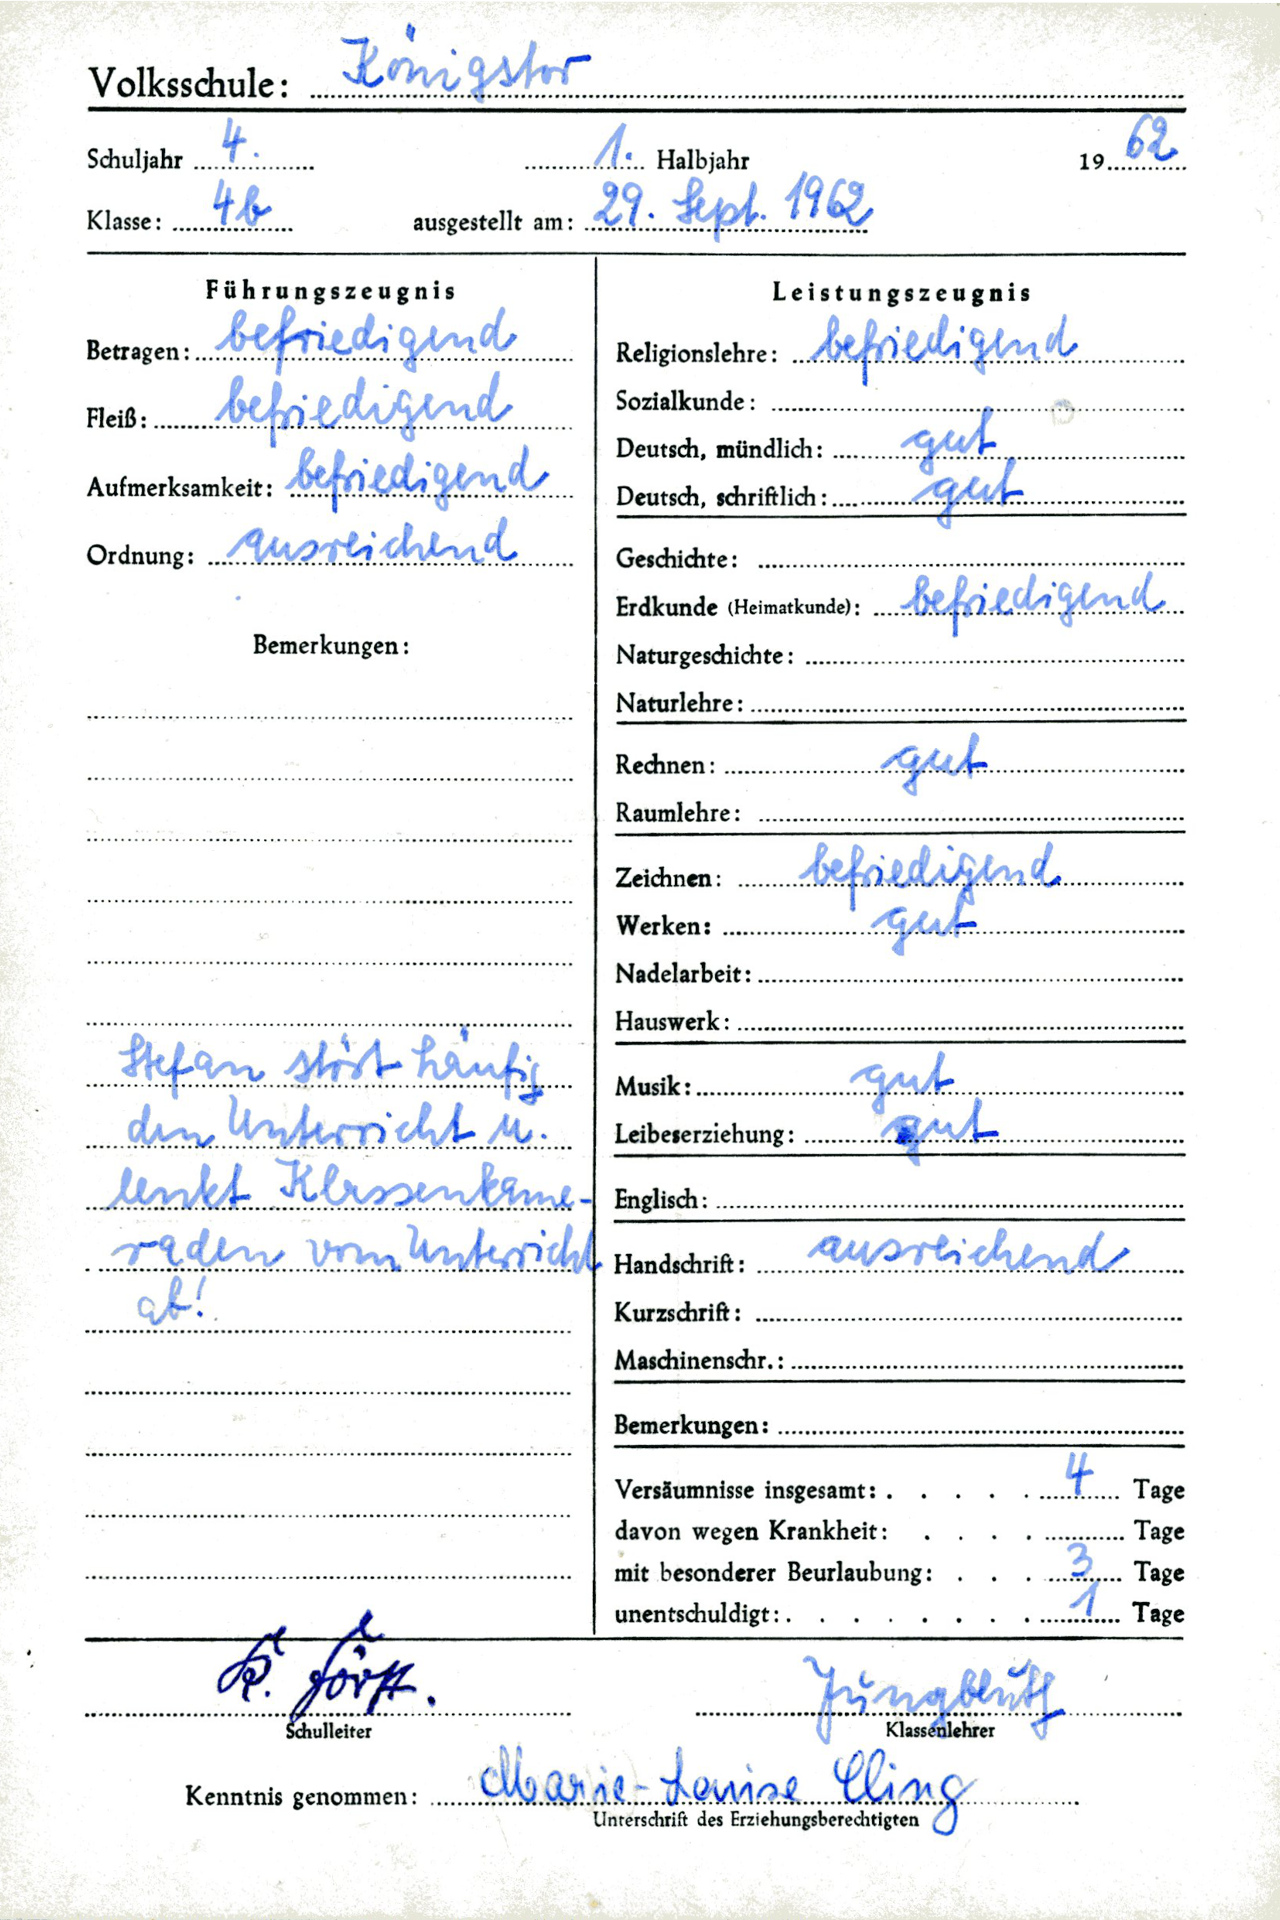 Volksschule: Königstor
Schuljahr 4. 1. Halbjahr 1962
Klasse: 4b ausgestellt am: 29. Sept. 1962
Führungszeugnis
Betragen: befriedigend
Fleiß: befriedigend
Aufmerksamkeit: befriedigend
Ordnung: ausreichend
Bemerkungen:
Stefan stört häufig
den Unterricht u.
lenkt Klassenkame-
raden vom Unterricht
ab!
Leistungszeugnis
Religionslehre: befriedigend
Sozialkunde:
Deutsch, mündlich: gut
Deutsch, schriftlich: gut
Geschichte:
Erdkunde (Heimatkunde): befriedigend
Naturgeschichte:
Naturlehre:
Rechnen: gut
Raumlehre:
Zeichnen: befriedigend
Werken: gut
Nadelarbeit:
Hauswerk:
Musik: gut
Leibeserziehung: gut
Englisch:
Handschrift: ausreichend
Kurzschrift:
Maschinenschr.:
Bemerkungen:
Versäumnisse insgesamt: 4 Tage
davon wegen Krankheit: Tage
mit besonderer Beurlaubung: 3 Tage
unentschuldigt: 1 Tage
Schulleiter
Jungbluth
Klassenlehrer
Kenntnis genommen: Marie-Louise Cling
Unterschrift des Erziehungsberechtigten